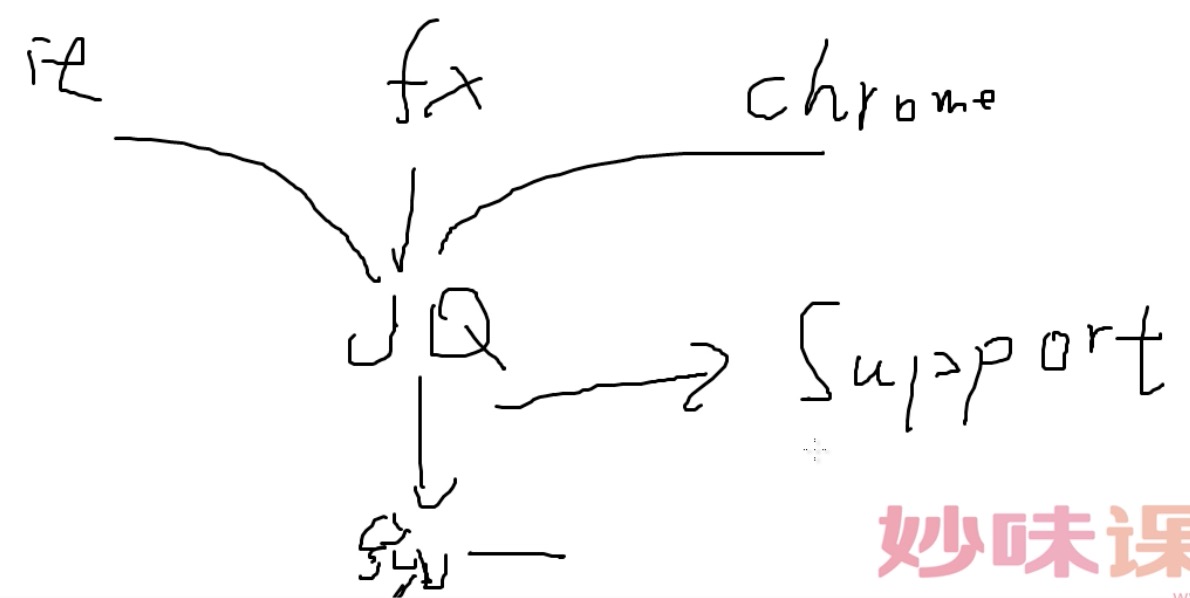 ie fx chrome
JQ
Support
妙味课